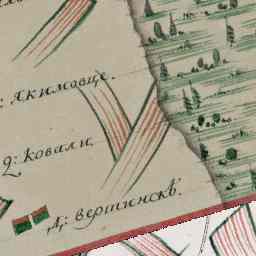 : якимовце.
д: ковали,
д: вертинскъ